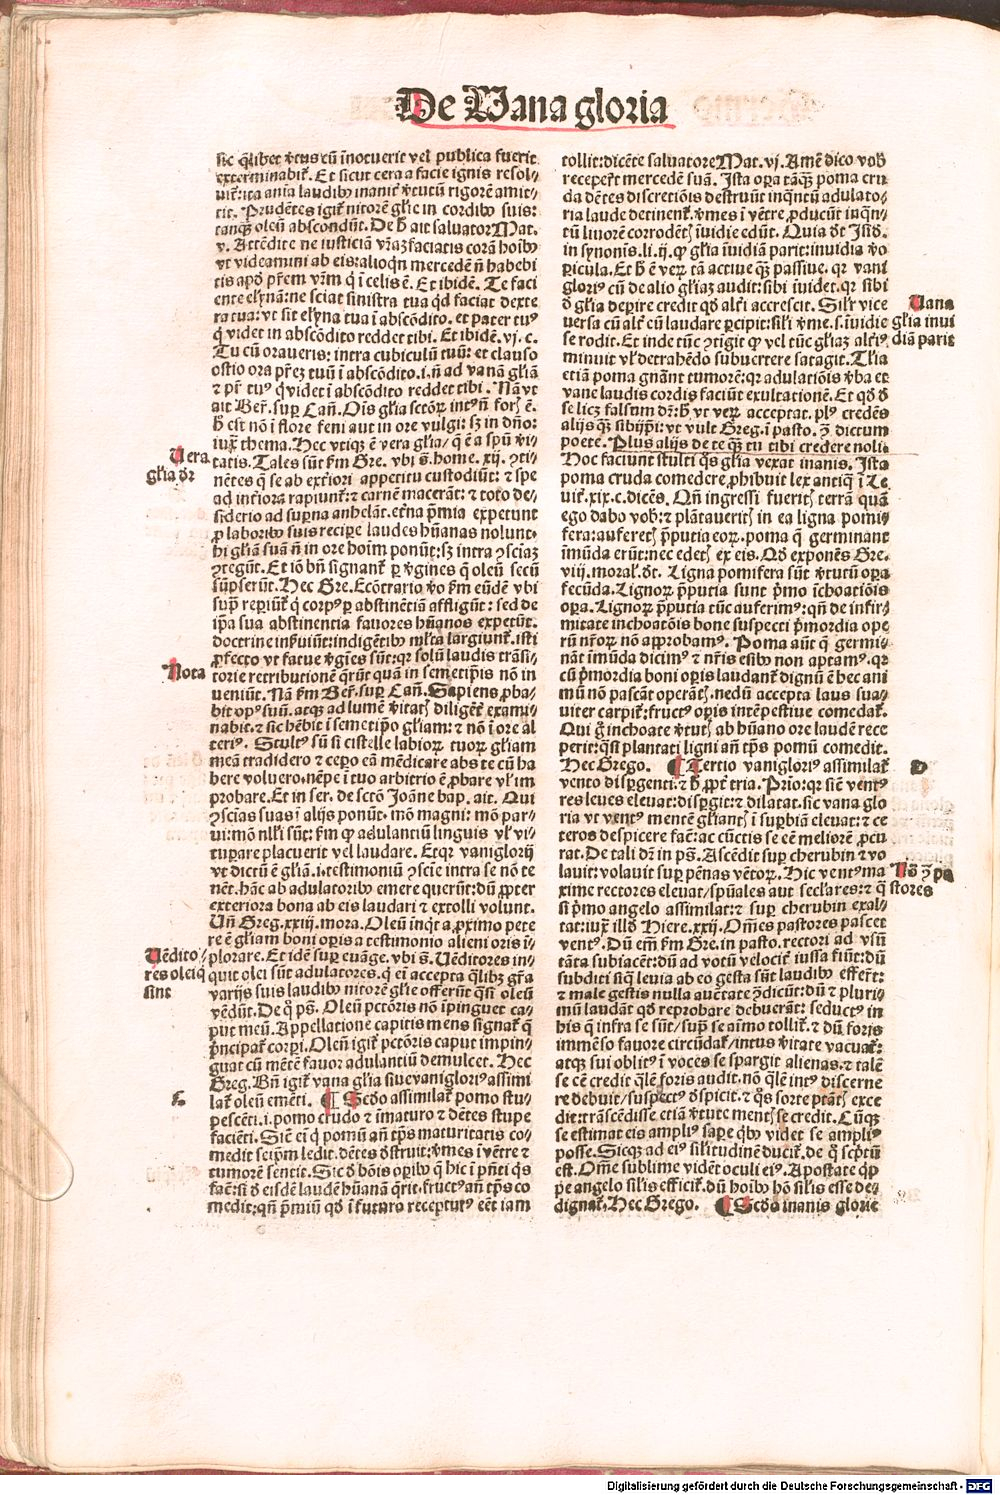 De Vana gloria
sic q̄libet v̓tus cū īnotuerit vel publica fuerit
exterminabit᷑. Et sicut cera a facie ignis resol⸗
uit᷑: ita aīa laudibꝰ inanit᷑ v̓tutū rigorē amit⸗
tit. Prudētes igit᷑ nitorē gl̓ie in cordibꝰ suis:
tanqꝫ oleū abscondūt. De h̓ ait saluator Mat.
v. Attēdite ne iusticiā vr̄aꝫ faciatis corā hoībꝰ
vt videamini ab eis: alioqn̄ mercedē n̄ habebi
tis apd̓ pr̄em vr̄m q̇ ī celis ē. Et ibidē. Te faci
ente elyn̄ā: ne sciat sinistra tua qd̓ faciat dexte
ra tua: vt sit elyn̄a tua ī abscōdito. et pater tuꝰ
q̇ videt in abscōdito reddet tibi. Et ibidē. vj. c.
Tu cū oraueris: intra cubiculū tuū: et clauso
ostio ora pr̄eꝫ tuū ī abscōdito. i. n̄ ad vanā gl̓iā
⁊ pr̄ tuꝰ q̇ videt ī abscōdito reddet tibi. Nā vt
ait Ber̄. suꝑ Can̄. Ois gl̓ia sctōꝝ intꝰ n̄ foris ē.
h̓ est nō ī flore feni aut in ore vulgi: sꝫ in dn̄o:
iux̄ thema. Hec vtiqꝫ ē vera gl̓ia/ q̄ ē a spū v̓i⸗
tatis. Tales sūt ẜm Gre. vbi s̄. home. xij. ꝯti⸗
nētes q̇ se ab ext̓iori appetitu custodiūt: ⁊ spe
ad int̓iora rapiunt᷑: ⁊ carnē macerāt: ⁊ toto de⸗
siderio ad suꝑna anhelāt. et̓na p̄mia expetunt
ꝓ laboribꝰ suis recipe laudes hūanas nolunt.
hi gl̓iā suā n̄ in ore hoīm ponūt: sꝫ intra ꝯsciaꝫ
ꝯtegūt. Et iō bn̄ signant᷑ ꝑ v̓gines q̄ oleū secū
sūpserūt. Hec Gre. Ecōtrario v̓o ẜm eūdē vbi
supͣ reꝑiūt᷑ q̇ corpꝰ ꝑ abstinētiā affligūt: sed de
ip̄a sua abstinentia fauores hūanos expetūt.
doctrine inẜuiūt: indigētibꝰ ml̓ta largiunt᷑. isti
ꝓfecto vt fatue v̓gīes sūt: qꝛ solū laudis trāsi⸗
torie retributionē q̄rūt quā in semetip̄is nō in
ueniūt. Nā ẜm Ber̄. suꝑ Can̄. Sapiens ꝓba⸗
bit opꝰ suū. atqꝫ ad lumē v̓itatis diligēt᷑ exami⸗
nabit. ⁊ sic hēbit ī semetip̄o gl̓iam: ⁊ nō ī ore al
teriꝰ. Stultꝰ sū si cistelle labioꝝ tuoꝝ gl̓iam
meā tradidero ⁊ cepo eā mēdicare abs te cū ha
bere voluero. nēpe ī tuo arbitrio ē ꝓbare vl̓ im
probare. Et in ser. de sctō Joāne bap. ait. Qui
ꝯscias suas ī alijs ponūt. mō magni: mō par⸗
ui: mō nl̓li sūt: ẜm q̄ adulantiū linguis vl̓ vi⸗
tuꝑare placuerit vel laudare. Et qꝛ vanigloriꝰ
vt dictū ē gl̓iā. i. testimoniū ꝯscie intra se nō te
net. hāc ab adulatoribꝰ emere querūt: dū ꝓpter
exteriora bona ab eis laudari ⁊ extolli volunt.
Vn̄ Greg. xxiij. mora. Oleū inq̇t a ꝓximo pete
re ē gl̓iam boni oꝑis a testimonio alieni oris i⸗
plorare. Et idē suꝑ euāge. vbi s̄. Vēditores in⸗
quit olei sūt adulatores. q̇ ei accepta q̄libꝫ gr̄a
varijs suis laudibꝰ nitorē gl̓ie offerūt q̄si oleū
vēdūt. De q̊ ps̄. Oleū pctōris nō īpinguet ca⸗
put meū. Appellatione capitis mens signat᷑ q̄
p̄ncipat᷑ corꝑi. Oleū igit᷑ pctōris caput impin⸗
guat cū mētē fauor adulantiū demulcet. Hec
Greg. Bn̄ igit᷑ vana gl̓ia siue vanigloriꝰ assimi
lat᷑ oleū emēti. ¶ Scd̓o assimilat᷑ pomo stu⸗
pescēti. i. pomo crudo ⁊ īmaturo ⁊ dētes stupe
faciēti. Sic̄ ei q̇ pomū an̄ tp̄s maturitatis co⸗
medit seip̄m ledit. dētes d̓struit: v̓mes ī vētre ⁊
tumorē sentit. Sic d̓ bōis oꝑibꝰ q̄ hic ī p̄nti q̇s
faē: si d̓ eisdē laudē hūanā q̄rit. fructꝰ an̄ tp̄s co
medit: qn̄ p̄miū qd̓ ī futuro recepturꝰ eēt iam
Vera
gl̓ia dr̄
Nota
Vēdito⸗
res olei q̇
sint
tollit: dicēte saluatore Mat. vj. Amē dico vob̓
receper̄t mercedē suā. Ista oꝑa tāqꝫ poma cru
da dētes discretiōis destruūt inq̄ntū adulato⸗
ria laude detinent᷑. v̓mes ī vētre ꝓducūt inq̄n⸗
tū liuorē corrodētis īuidie edūt. Quia d̓t Isid̓.
in synonis. li. ij. ꝙ gl̓ia īuidiā parit: inuidia v̓o
ꝑicula. Et h̓ ē veꝝ tā actiue qꝫ passiue. qꝛ vani
gloriꝰ cū de alio gl̓iaꝫ audit: sibi īuidet. qꝛ sibi
d̓ gl̓ia deꝑire credit qd̓ alt̓i accrescit. Sil̓r vice
versa cū alt̓ cū laudare ꝑcipit: sil̓i v̓me. s. īuidie
se rodit. Et inde tūc ꝯtigit ꝙ vel tūc gl̓iaꝫ alt̓iꝰ
minuit vl̓ detrahēdo subuertere satagit. Tl̓ia
etiā poma gnānt tumorē: qꝛ adulatiōis v̓ba et
vane laudis cordis faciūt exultationē. Et qd̓ d̓
se licꝫ falsum dr̄: h̓ vt veꝝ acceptat. plꝰ credēs
alijs qꝫ sibijpi: vt vult Greg. ī pasto. ꝯ̄ dictum
poete. Plus alijs de te qꝫ tu tibi credere noli.
Hoc faciunt stulti q̊s gl̓ia vexat inanis. Ista
poma cruda comedere ꝓhibuit lex antiq̄ ī Le⸗
uit᷑. xix. c. dicēs. Qn̄ ingressi fueritis terrā quā
ego dabo vob̓: ⁊ plātaueritis in ea ligna pomi⸗
fera: auferetis p̄putia eoꝝ. poma q̄ germinant
īmūda erūt: nec edetis ex eis. Qd̓ exponēs Gre.
viij. moral̓. d̓t. Ligna pomifera sūt v̓tutū oꝑa
fecūda. Lignoꝝ p̄putia sunt p̄mo īchoatiōis
oꝑa. Lignoꝝ p̄putia tūc auferimꝰ: qn̄ de infir⸗
mitate inchoatōis bone suspecti p̄mordia ope
rū nr̄oꝝ nō approbamꝰ. Poma aūt q̄ germi⸗
nāt īmūda dicimꝰ ⁊ nr̄is esibꝰ non aptamꝰ. qꝛ
cū p̄mordia boni oꝑis laudant᷑ dignū ē hec ani
mū nō pascāt oꝑantis. nedū accepta laus sua⸗
uiter carpit᷑: fructꝰ oꝑis intēpestiue comedat᷑.
Qui g̊ inchoate v̓tutis ab hūano ore laudē rece
perit: q̄si plantati ligni an̄ tp̄s pomū comedit.
Hec Grego. ¶ Tertio vanigloriꝰ assimilat᷑
vento disꝑgenti. ⁊ h̓ ꝓpt̓ tria. Prīo: qꝛ sic̄ ventꝰ
res leues eleuat: disꝑgit: ⁊ dilatat. sic vana glo
ria vt ventꝰ mentē gl̓iantis ī suꝑbiā eleuat: ⁊ ce
teros despicere faē: ac cūctis se eē meliorē ꝓcu
rat. De tali dr̄ in ps̄. Ascēdit suꝑ cherubin ⁊ vo
lauit: volauit suꝑ pēnas vētoꝝ. Hic ventꝰ ma
xime rectores eleuat/ spūales aut secl̓ares: ⁊ q̄
si p̄mo angelo assimilat: ⁊ suꝑ cherubin exal⸗
tat: iux̄ illd̓ Hiere. xxij. Om̄es pastores pascet
ventꝰ. Dū em̄ ẜm Gre. in pasto. rectori ad vsū
tāta subiacēt: dū ad votū velocit᷑ iussa fiūt: dū
subditi siq̄ leuia ab eo gesta sūt laudibꝰ effert᷑:
⁊ male gestis nulla auctate ꝯ̄dicūt: dū ⁊ pluri⸗
mū laudāt qd̓ reprobare debuerāt: seductꝰ in
his q̄ infra se sūt/ supͣ se aīmo tollit᷑. ⁊ dū foris
immēso fauore circūdat᷑/ intus v̓itate vacuat᷑:
atqꝫ sui oblitꝰ ī voces se spargit alienas. ⁊ talē
se eē credit q̄lē foris audit. nō q̄lē intꝰ discerne
re debuit/ suspectꝰ d̓spicit. ⁊ q̊s sorte ptātis exce
dit: trāscēdisse etiā v̓tute mentis se credit. Cūqꝫ
se estimat eis ampliꝰ saꝑe qͥbꝰ videt se ampliꝰ
posse. Sicqꝫ ad eiꝰ sil̓itudinē ducit᷑. de q̊ sc̄ptū
est. Om̄e sublime vidēt oculi eiꝰ. Apostate q̄p̄
pe angelo sil̓is efficit᷑. dū hoībꝰ hō sil̓is esse de⸗
dignat᷑. Hec Grego. ¶ Scd̓o inanis glorie
Vana
gl̓ia inui
diā parit
D
No ꝯ̄ pa
stores
Digitalisierung gefördert durch die Deutsche Forschungsgemeinschaft - DFG